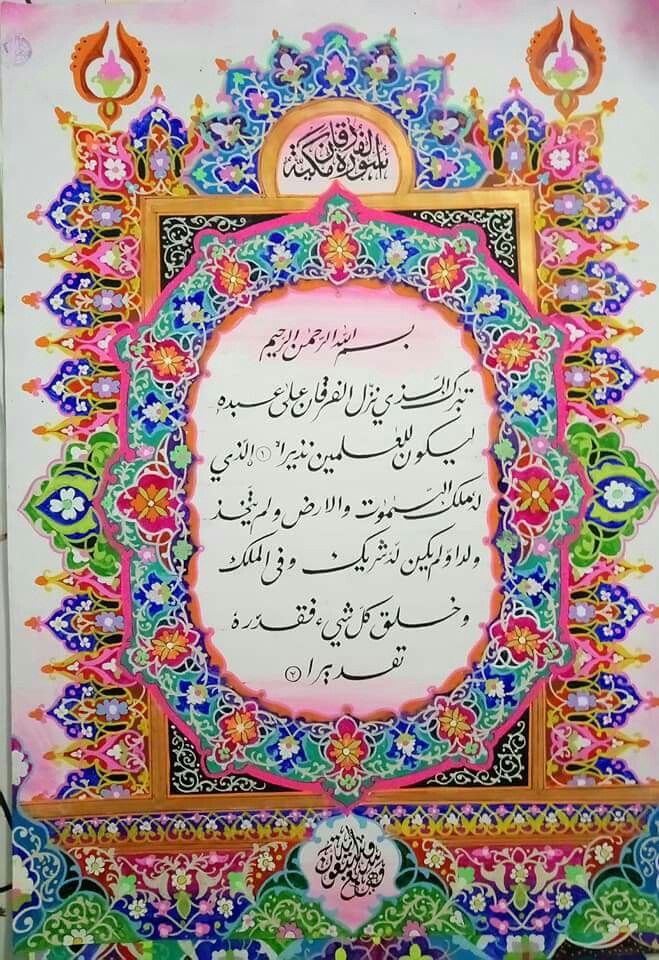 سورة الفرقان مكية
بسم الله الرحمن الرحيم
تبرك الذي نزّل الفرقان على عبده
ليكون للعٰلمين نذيرا ١ الّذي
له ملك السّمٰوٰت والارض ولم يتّخذ
ولدا وّلم يكن له شريك وفى الملك
وخلق كلّ شيء فقدّره
تقديرا ٢
وهي سبع وسبعون آية